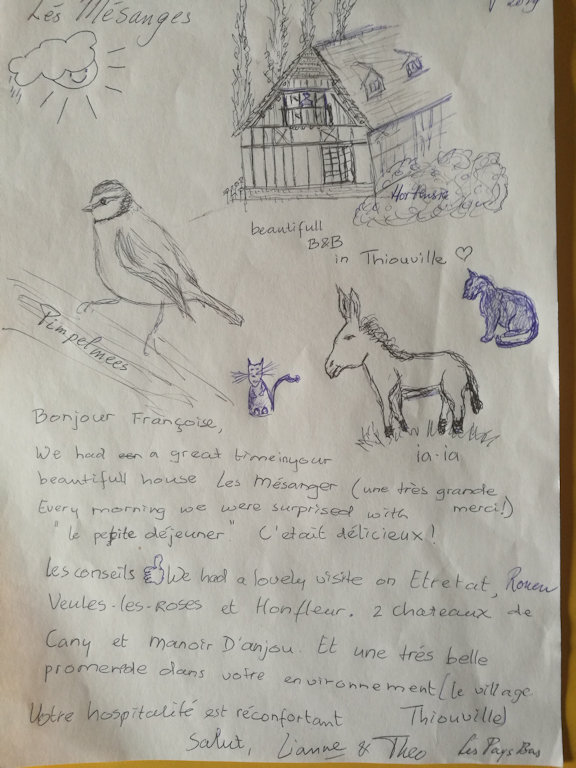 Les Mésanges
2019
Hortensia
beautifull
B&B
in Thiouville ♡
Pimpelmees
ia-ia
Bonjour Françoise,
We had a great time in your
beautifull house Les Mésanger (une très grande
merci!)
Every morning we were surprised with
"le petite déjeuner" C'etait délicieux!
Les conseils 👍 We had a lovely visite on Etretat, Rouen
Veules-les-Roses et Honfleur. 2 chateaux de
Cany et Manoir D'anjou. Et une trés belle
promenade dans votre environnement (le village
Thiouville)
Votre hospitalité est réconfortant
Salut, Lianne & Theo Les Pays Bas